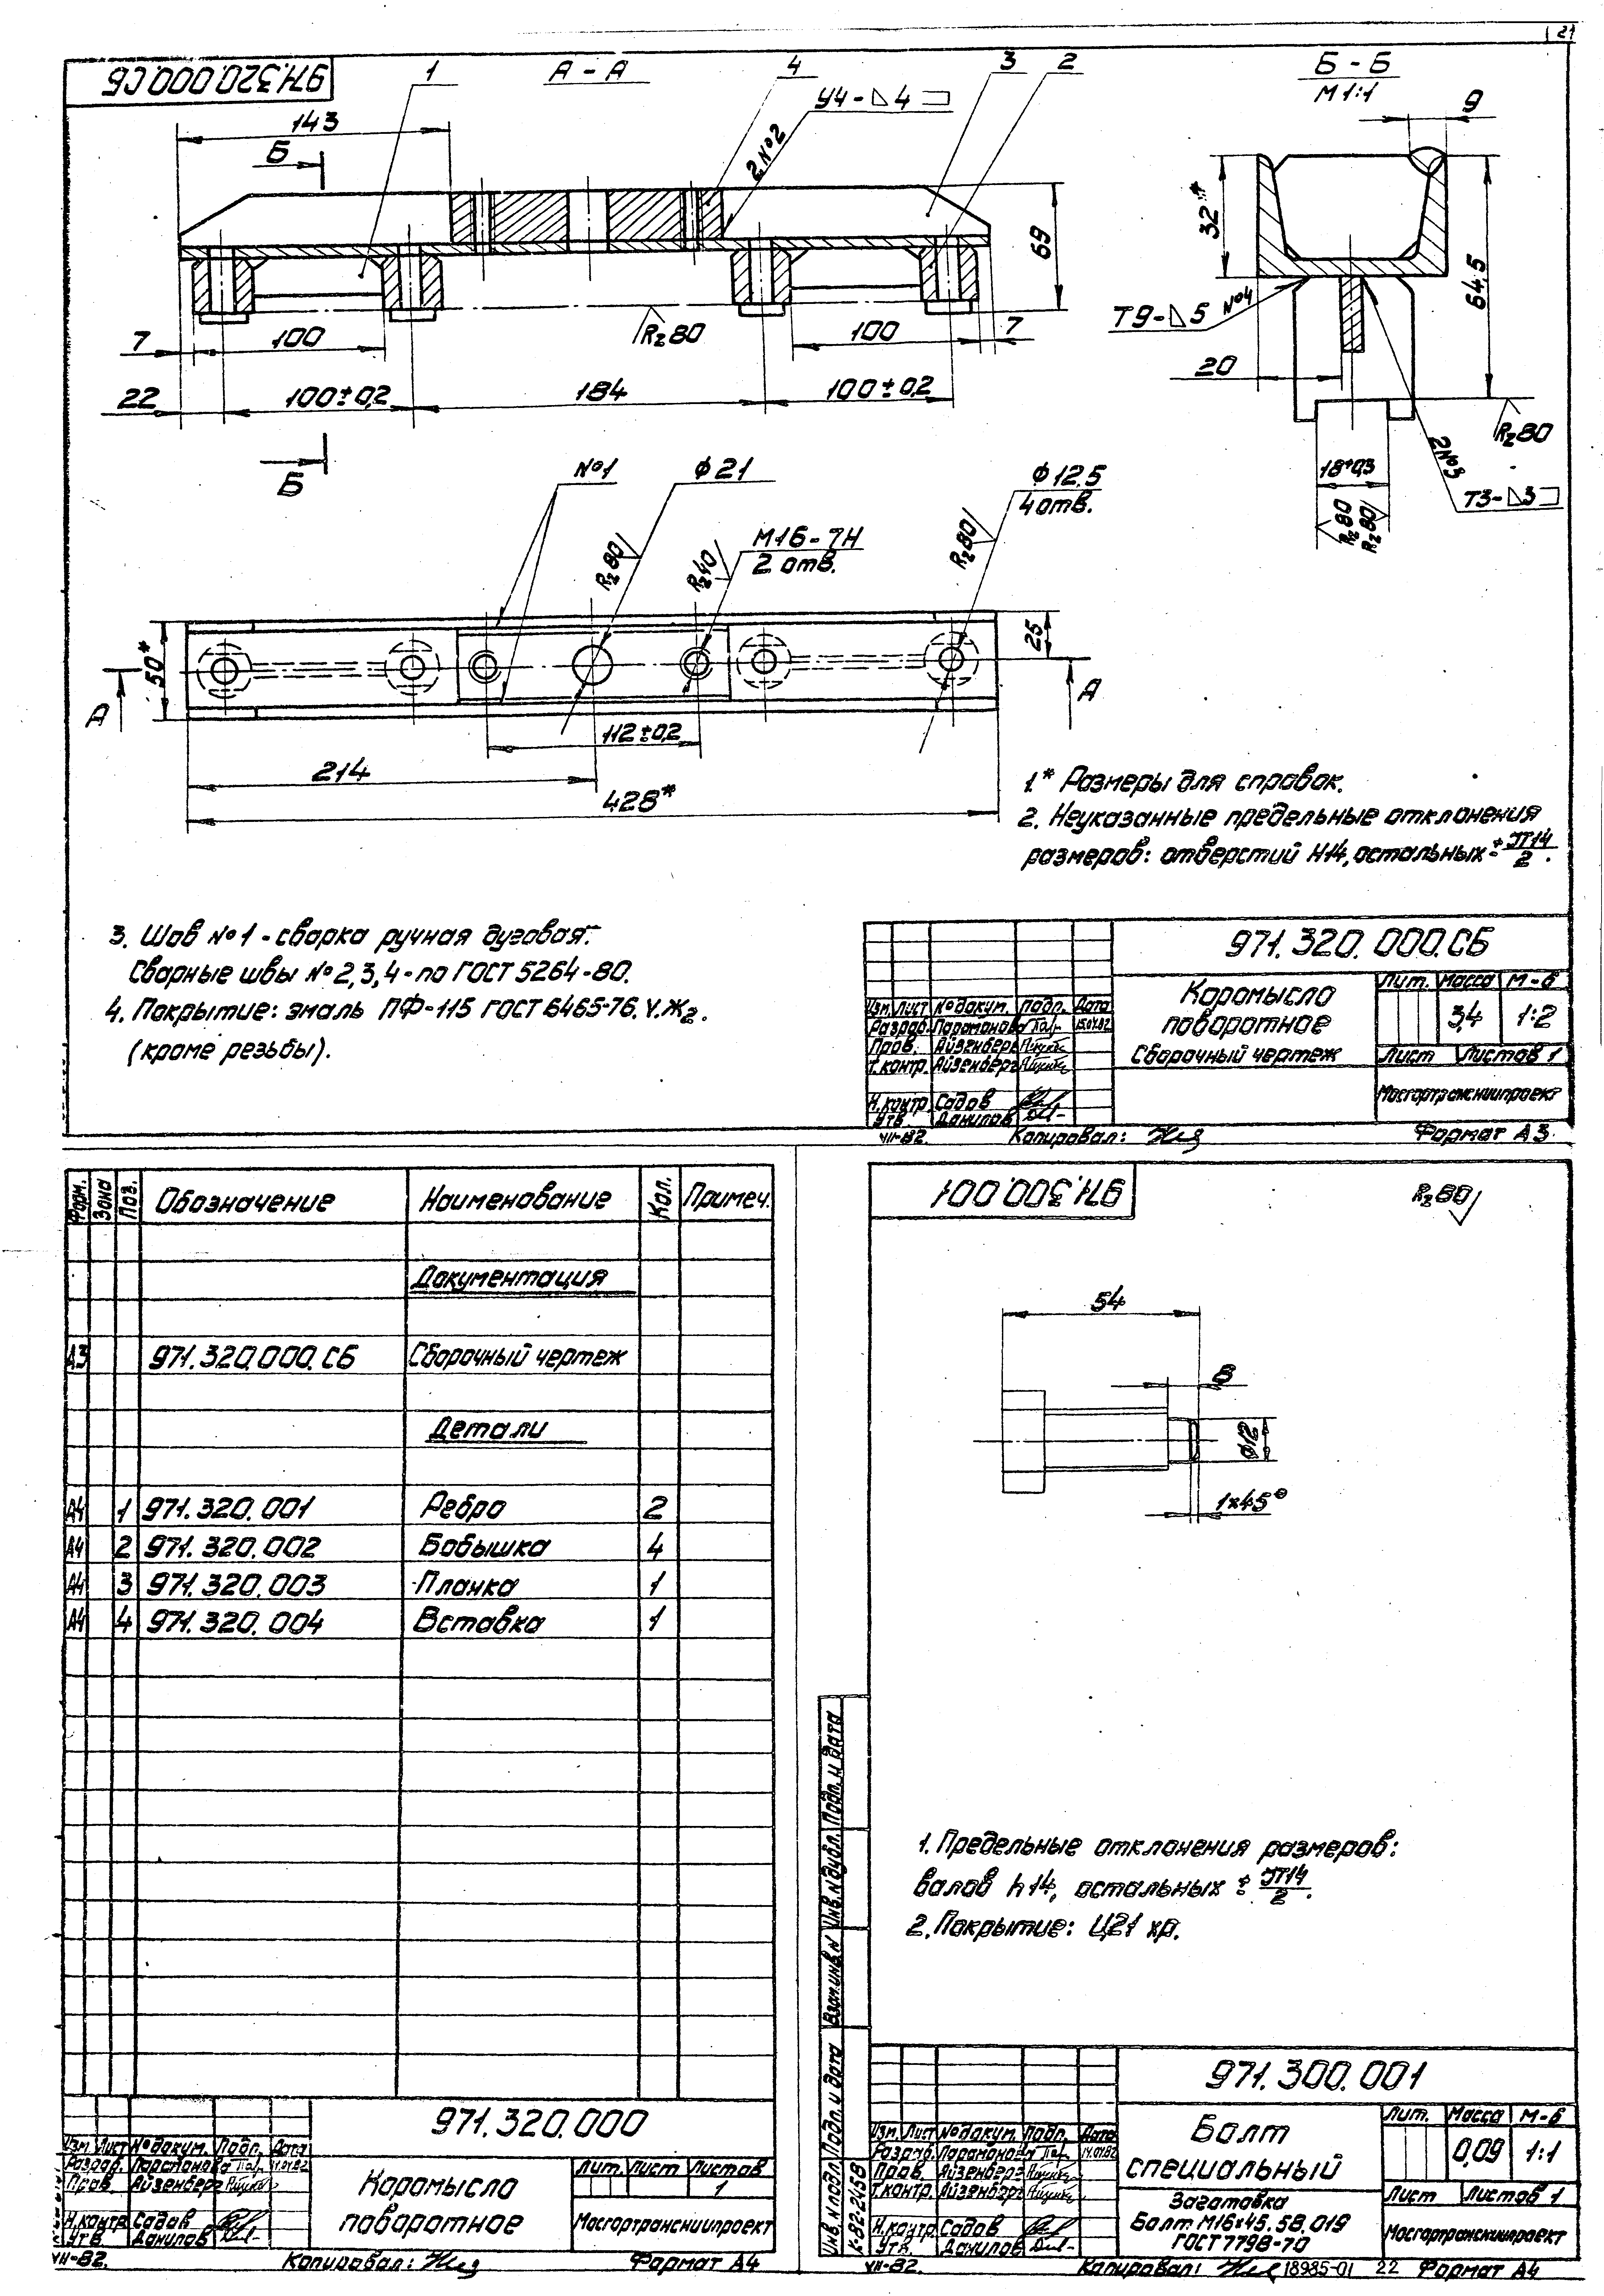 21
971.320.000.СБ
1
А - А
4
3
2
Б - Б
М 1:1
У4-◺4 ▭
2 №2
143
Б
69
7
100
Rz80
100
7
22
100±0,2
184
100±0,2
Б
9
32*
64,5
Т9-◺5 №4
20
Rz80
18+0,3
Rz80
Rz80
2 №3
Т3-◺3
№1
Ф21
Ф12,5
4 отв.
М16-7Н
2 отв.
Rz80
Rz40
Rz80
50*
25
А
А
112±0,2
214
428*
1.* Размеры для справок.
2. Неуказанные предельные отклонения
размеров: отверстий Н14, остальных ± JT14/2.
3. Шов №1 - сварка ручная дуговая.
Сварные швы №2,3,4 - по ГОСТ 5264-80.
4. Покрытие: эмаль ПФ-115 ГОСТ 6465-76. У. Ж2.
(кроме резьбы).
971.320.000.СБ
Коромысло
поворотное
Сборочный чертеж
Лит. Масса М-б
3,4 1:2
Лист Листов 1
Мосгортрансниипроект
Изм. Лист №докум. Подп. Дата
Разраб. Парамонова 15.01.82
Пров. Айзенберг
Т.контр. Айзенберг
Н.контр. Садов
Утв. Данилов
VII-82. Копировал: Формат А3.
Форм. Зона Поз. Обозначение Наименование Кол. Примеч.
Документация
А3 971.320.000.СБ Сборочный чертеж
Детали
А4 1 971.320.001 Ребро 2
А4 2 971.320.002 Бобышка 4
А4 3 971.320.003 Планка 1
А4 4 971.320.004 Вставка 1
971.320.000
Изм. Лист №докум. Подп. Дата
Разраб. Парамонова 11.01.82
Пров. Айзенберг
Н.контр. Садов
Утв. Данилов
Коромысло
поворотное
Лит. Лист Листов
1
Мосгортрансниипроект
VII-82. Копировал: Формат А4
971.300.001
Rz80
54
8
Ф12
1×45°
1. Предельные отклонения размеров:
валов h14, остальных ± JT14/2.
2. Покрытие: Ц21 хр.
Инв.№подл. Подп. и дата Взам.инв.№ Инв.№дубл. Подп. и дата
К-82-2458
971.300.001
Болт
специальный
Заготовка
Болт М16×45.58.019
ГОСТ 7798-70
Лит. Масса М-б
0,09 1:1
Лист Листов 1
Мосгортрансниипроект
Изм. Лист №докум. Подп. Дата
Разраб. Парамонова 14.01.82
Пров. Айзенберг
Т.контр. Айзенберг
Н.контр. Садов
Утв. Данилов
VII-82. Копировал: 18985-01 22 Формат А4